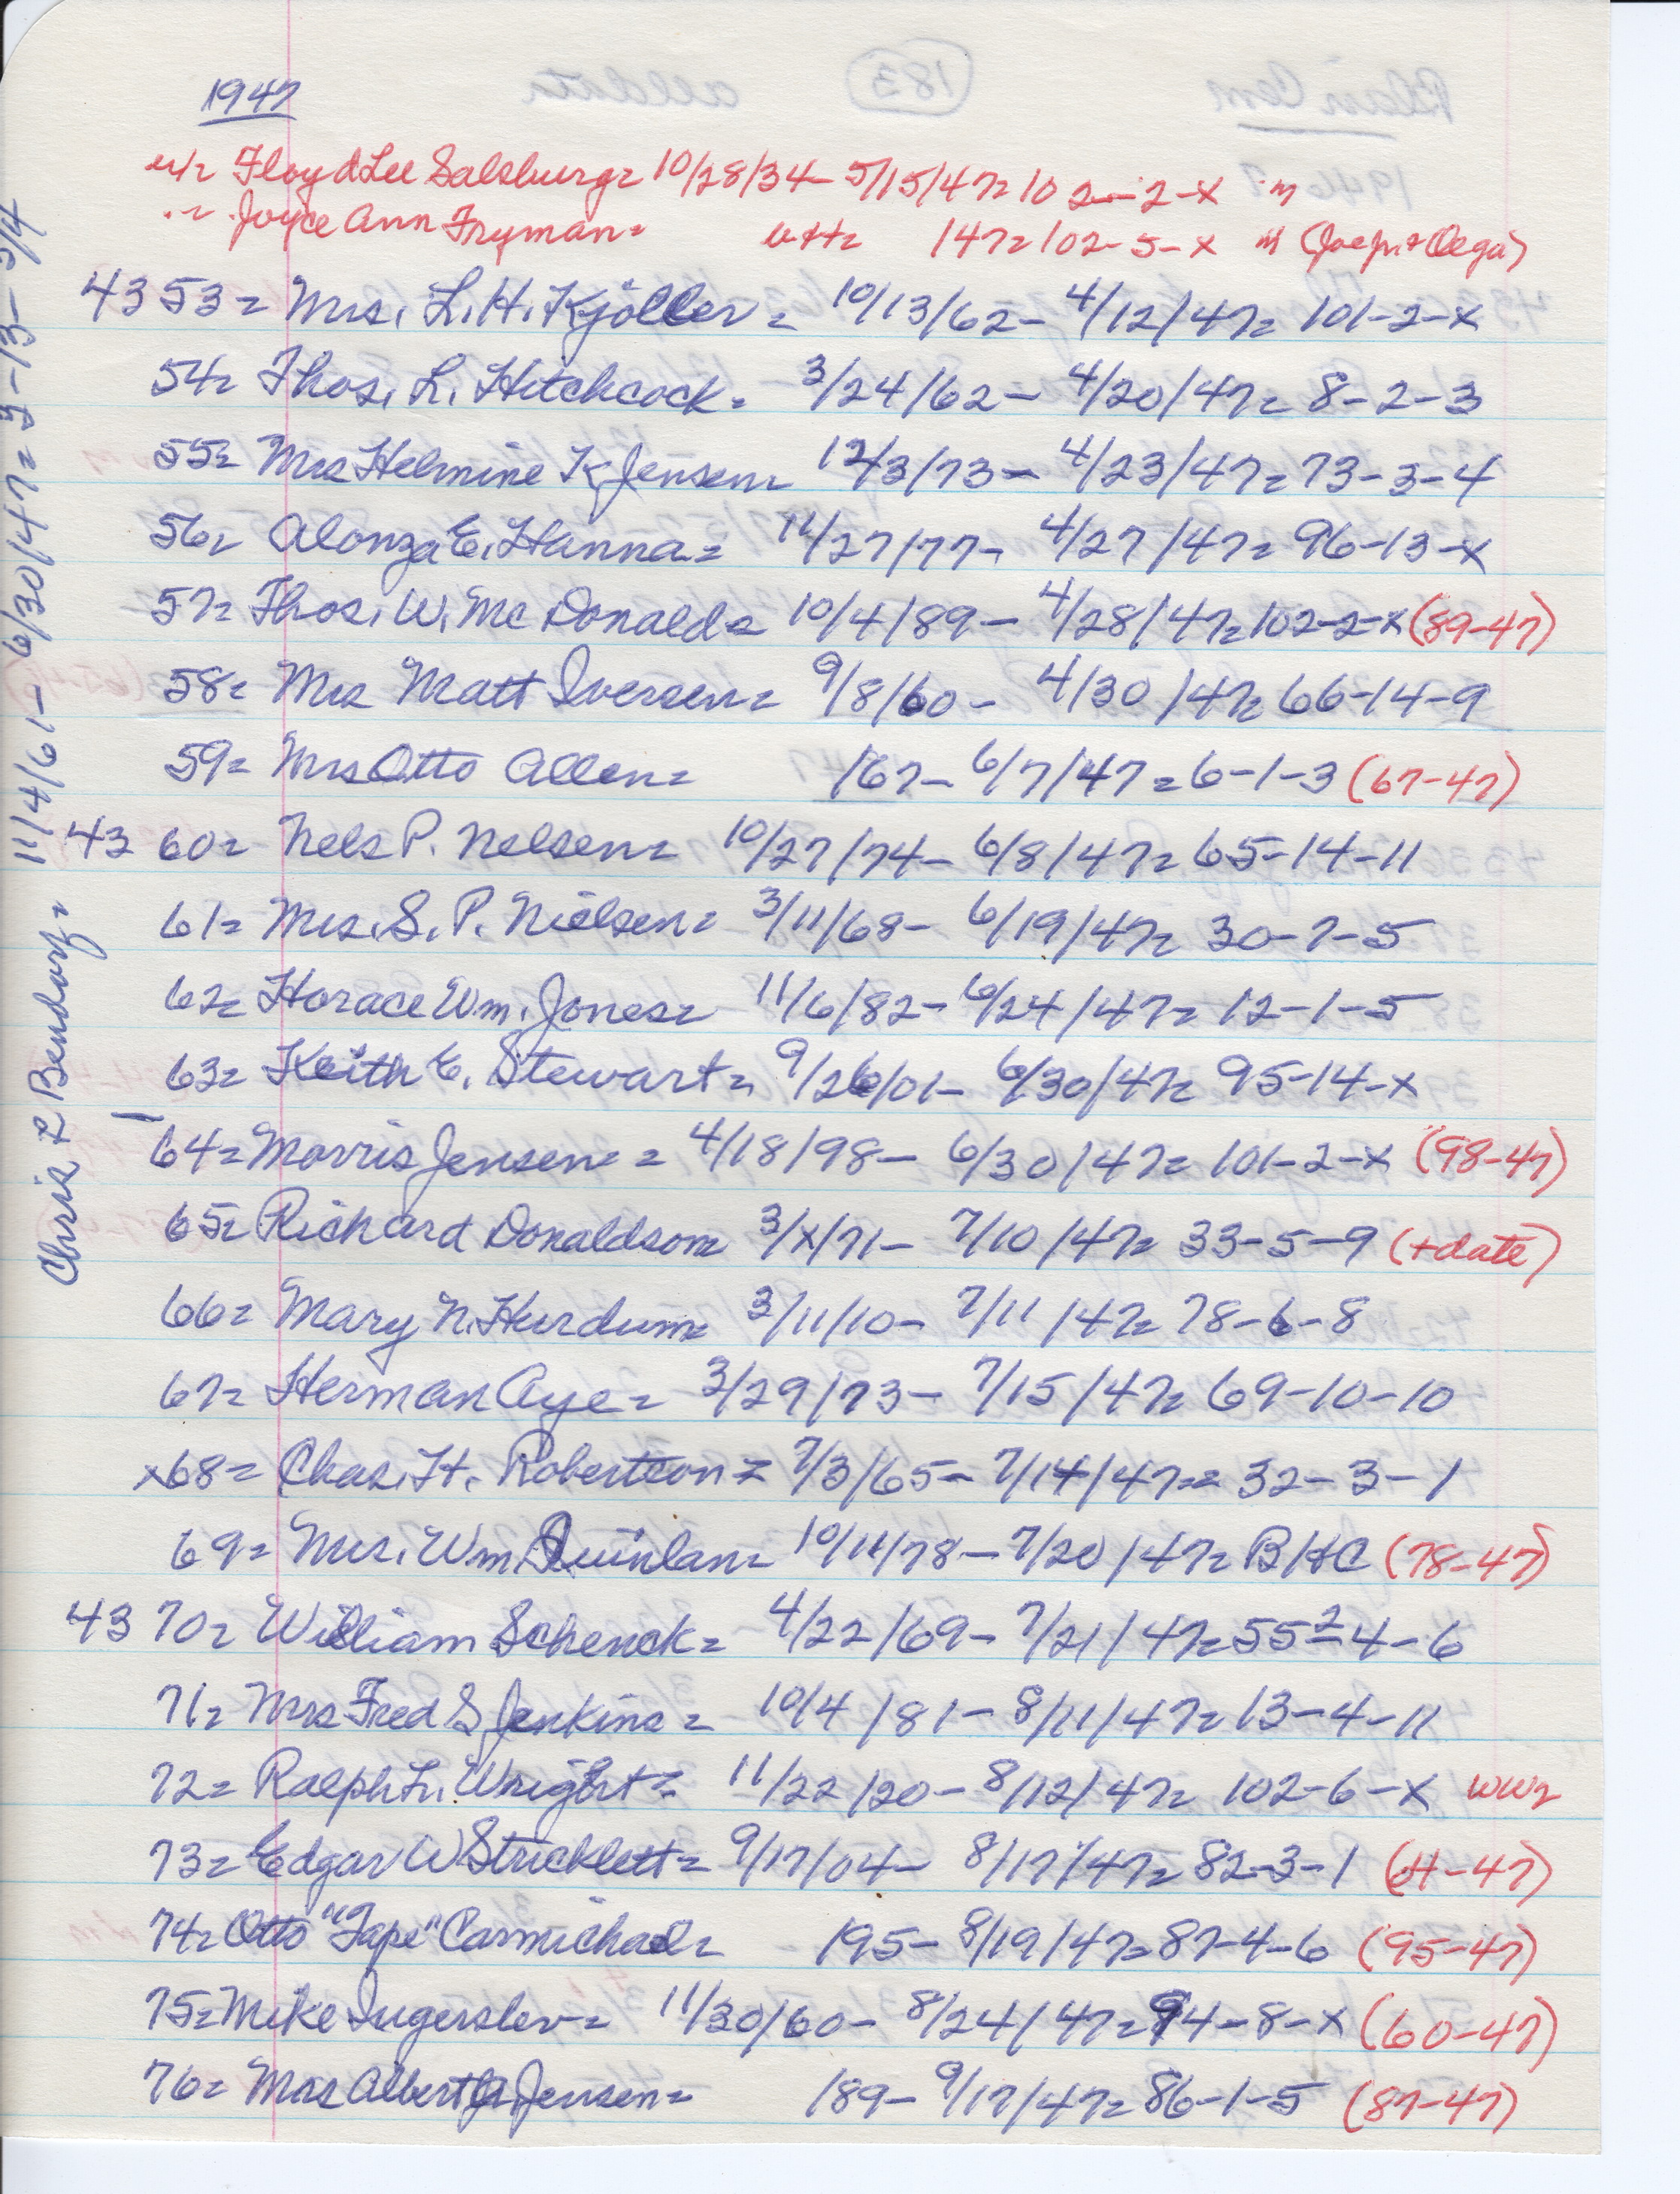 1947
Floyd Lee Salsburg = 10/28/34 - 5/15/47 = 102-2-X
Joyce Ann Fryman = /47 = 102-5-X
4353 = Mrs. L. H. Kjoller = 10/13/62 - 4/12/47 = 101-2-X
54 = Thos. L. Hitchcock = 3/24/62 - 4/20/47 = 8-2-3
55 = Mrs Helmine K Jensen = 12/3/73 - 4/23/47 = 73-3-4
56 = Alonza E. Hanna = 11/27/77 - 4/27/47 = 96-13-X
57 = Thos. W. McDonald = 10/4/89 - 4/28/47 = 102-2-X (89-47)
58 = Mrs Matt Iversen = 9/8/60 - 4/30/47 = 66-14-9
59 = Mrs Otto Allen = /67 - 6/7/47 = 6-1-3 (67-47)
43 60 = Nels P. Nelsen = 10/27/74 - 6/8/47 = 65-14-11
61 = Mrs. S. P. Nielsen = 3/11/68 - 6/19/47 = 30-7-5
62 = Horace Wm. Jones = 11/6/82 - 6/24/47 = 12-1-5
63 = Keith E. Stewart = 9/26/01 - 6/30/47 = 95-14-X
64 = Morris Jensen = = 4/18/98 - 6/30/47 = 101-2-X (98-47)
65 = Richard Donaldson = 3/X/71 - 7/10/47 = 33-5-9 (+date)
66 = Mary N. Hurdum = 3/11/10 - 7/11/47 = 78-6-8
67 = Herman Aye = 3/29/73 - 7/15/47 = 69-10-10
x68 = Chas. H. Robertson = 7/3/65 - 7/14/47 = 32-3-1
69 = Mrs. Wm. Quinlan = 10/11/78 - 7/20/47 = BHC (78-47)
43 70 = William Schenck = 4/22/69 - 7/21/47 = 55²-4-6
71 = Mrs Fred S Jenkins = 10/4/81 - 8/11/47 = 13-4-11
72 = Ralph L. Wright = 11/22/20 - 8/12/47 = 102-6-X WW2
73 = Edgar W Stricklett = 9/17/04 - 8/17/47 = 82-3-1
74 = Otto "Tape" Carmichael = /95 - 8/19/47 = 87-4-6 (95-47)
75 = Mike Ingerslev = 11/30/60 - 8/24/47 = 94-8-X (60-47)
76 = Mrs Albert Jensen = /89 - 9/17/47 = 86-1-5 (87-47)
Chris L Bendorf = 11/4/61 - 6/30/47 = 5-13-3/4